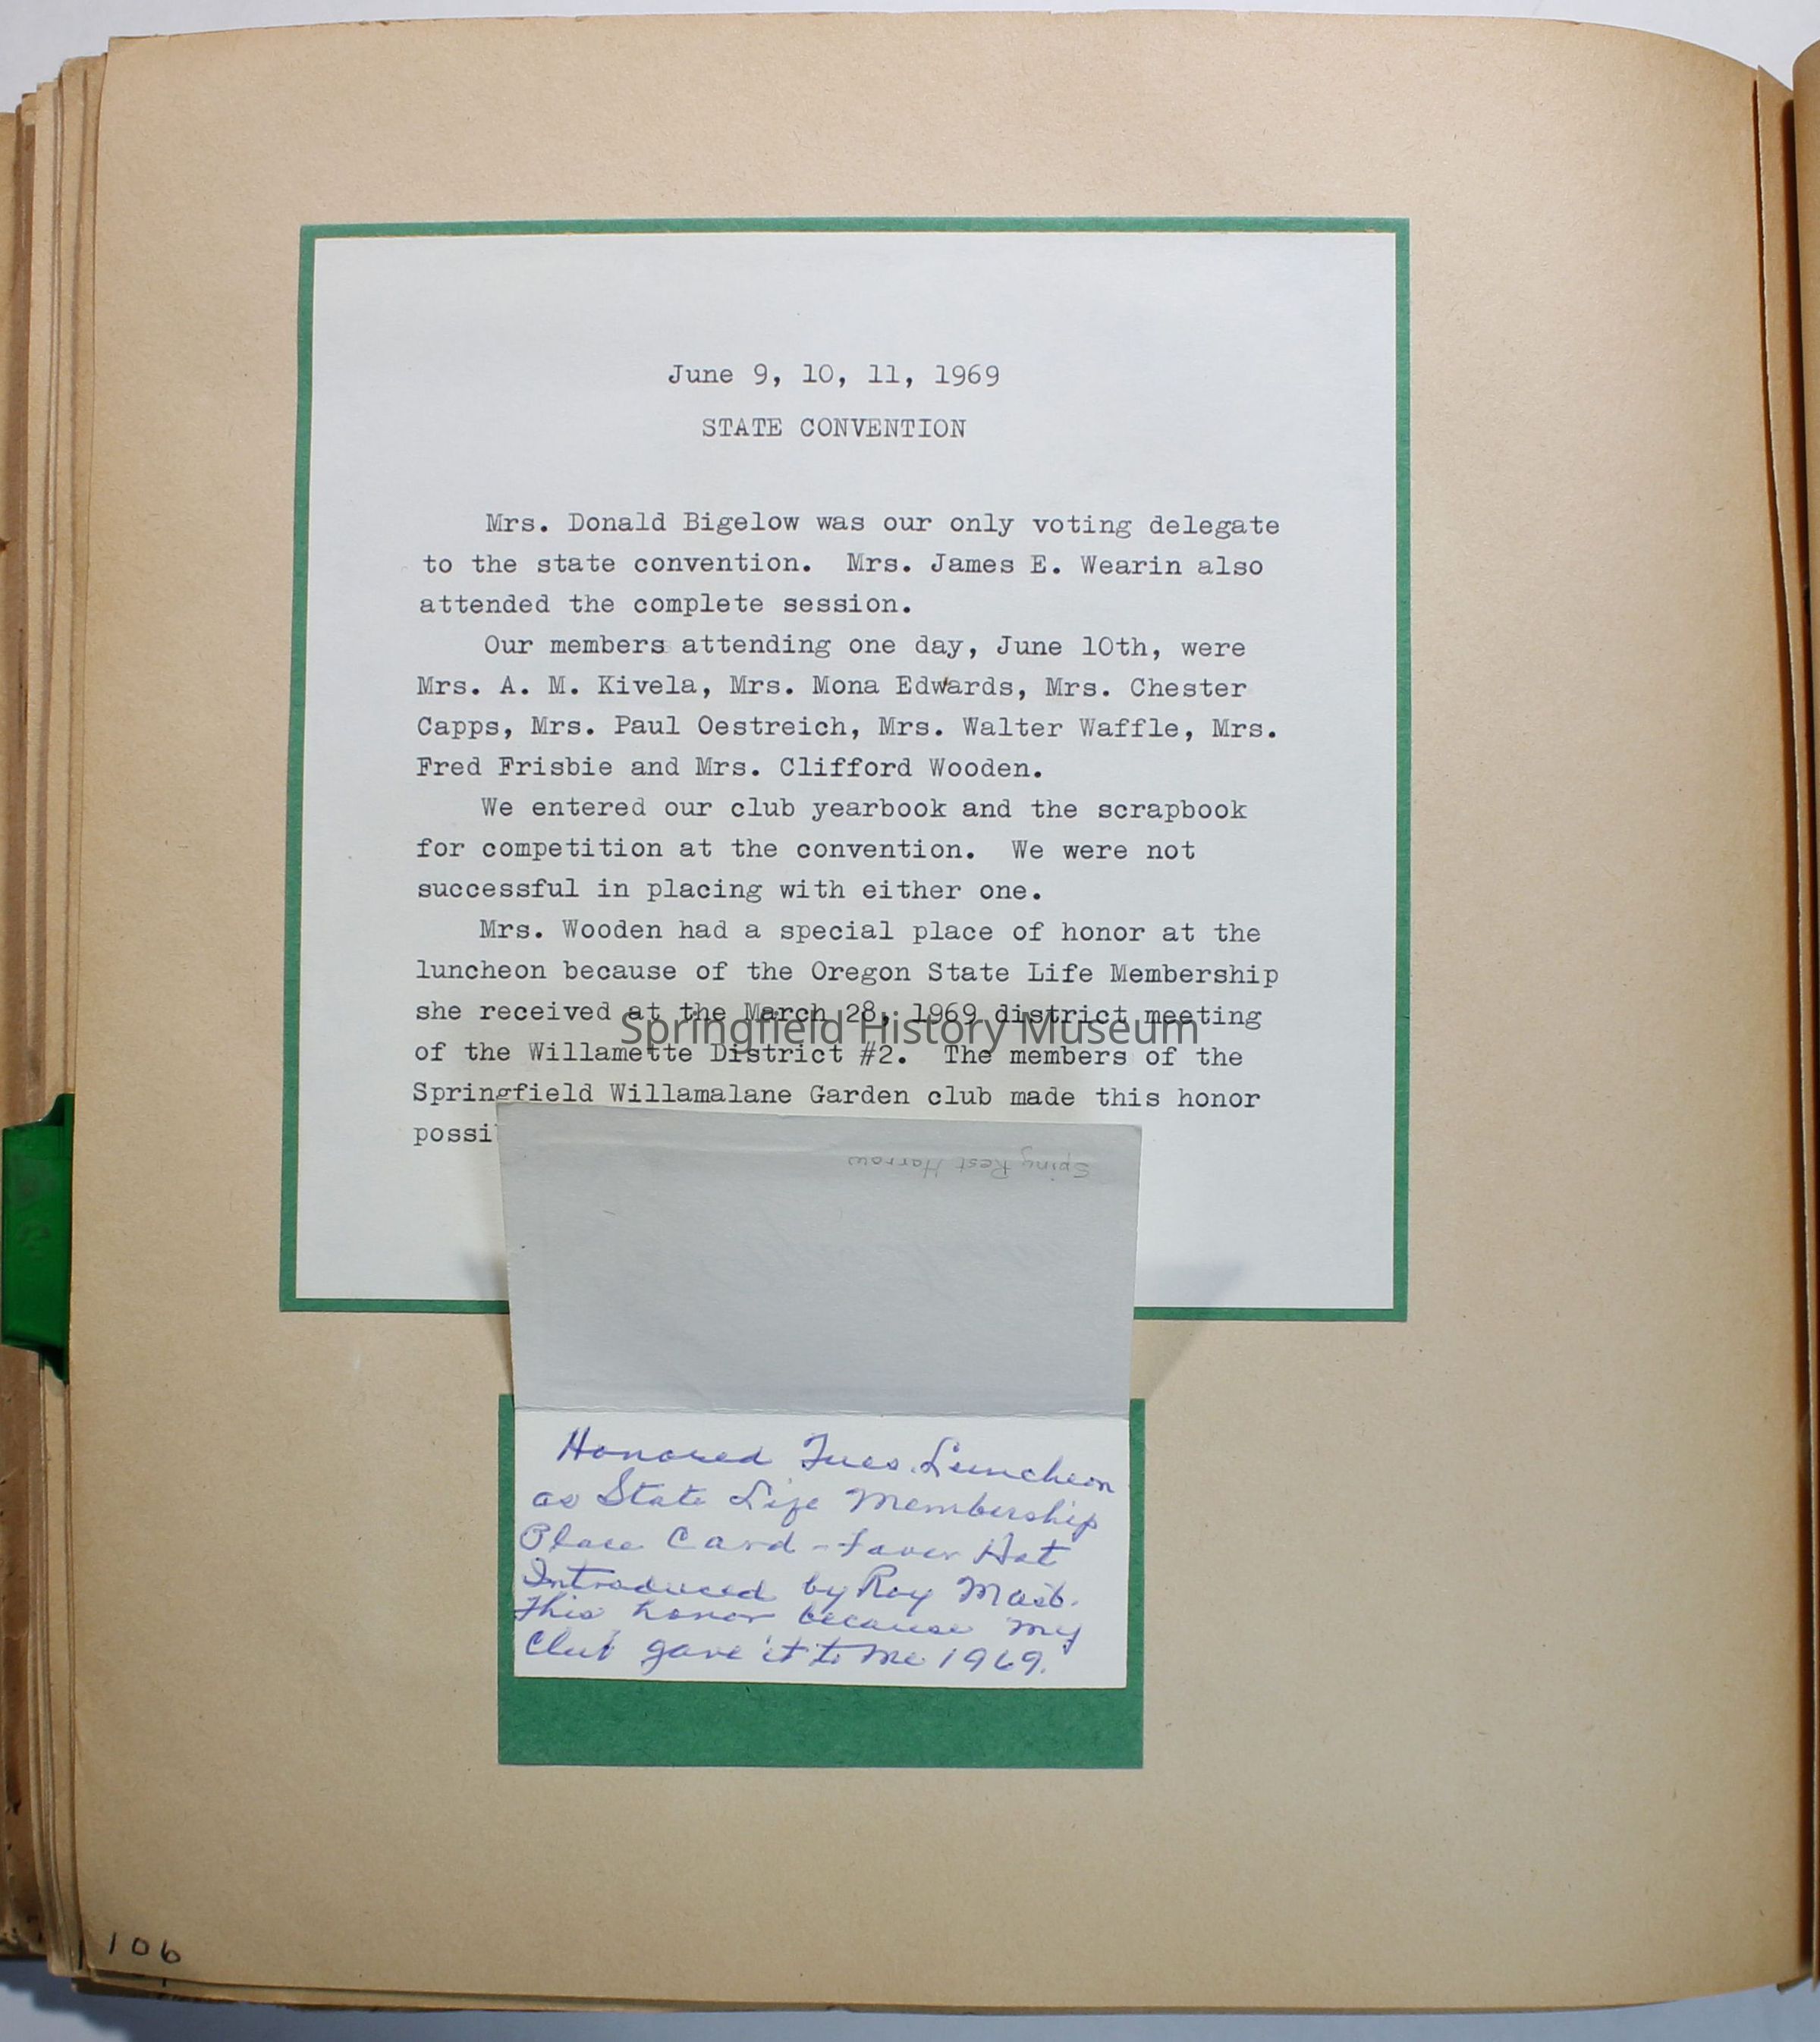 June 9, 10, 11, 1969
STATE CONVENTION
Mrs. Donald Bigelow was our only voting delegate
to the state convention. Mrs. James E. Wearin also
attended the complete session.
Our members attending one day, June 10th, were
Mrs. A. M. Kivela, Mrs. Mona Edwards, Mrs. Chester
Capps, Mrs. Paul Oestreich, Mrs. Walter Waffle, Mrs.
Fred Frisbie and Mrs. Clifford Wooden.
We entered our club yearbook and the scrapbook
for competition at the convention. We were not
successful in placing with either one.
Mrs. Wooden had a special place of honor at the
luncheon because of the Oregon State Life Membership
she received at the March 28, 1969 district meeting
Springfield History Museum
of the Willamette District #2. The members of the
Springfield Willamalane Garden club made this honor
possi
Spiny Rest Harrow
Honored Tues. Luncheon
as State Life Membership
Place Card - favor Hat
Introduced by Roy
This honor because my
Club gave it to me 1969.
106